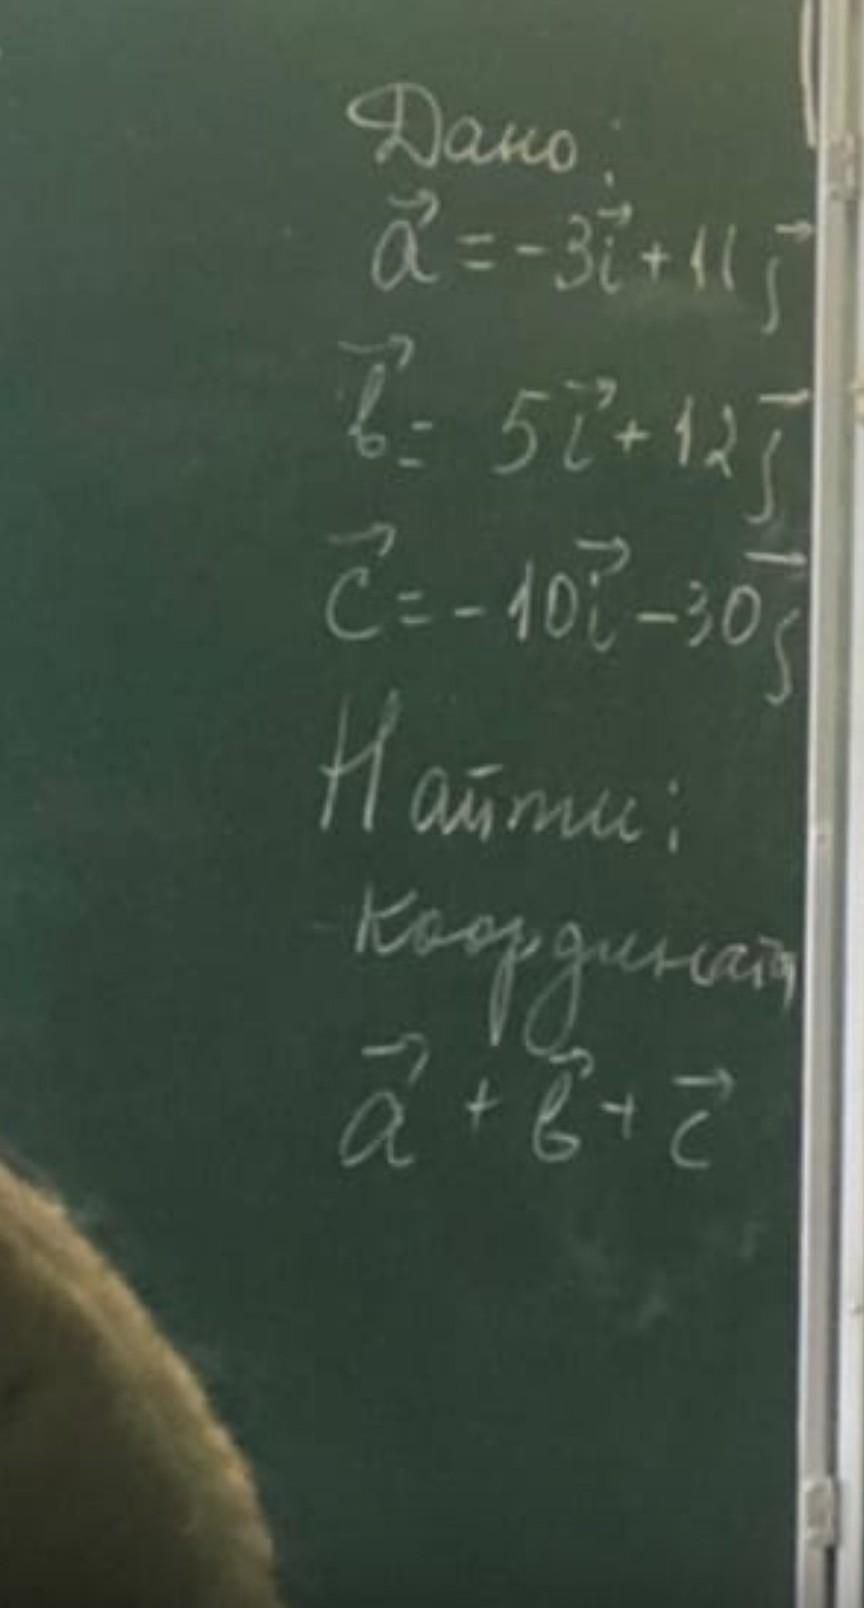 Дано:
a⃗ = -3i⃗ + 11j⃗
b⃗ = 5i⃗ + 12j⃗
c⃗ = -10i⃗ - 30j⃗
Найти:
координаты
a⃗ + b⃗ + c⃗